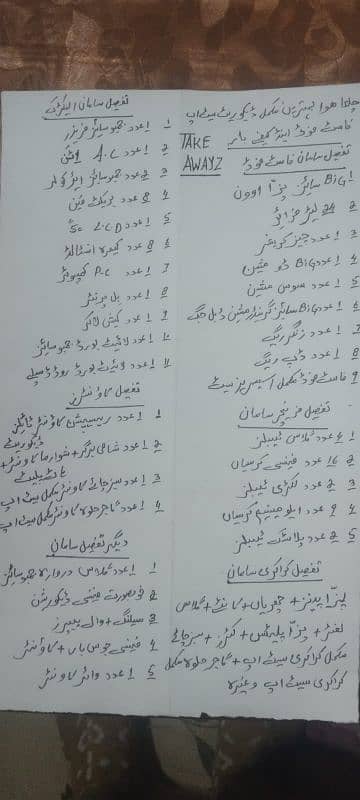 چلتا ہوا بہترین مکمل ڈیکوریٹ سیٹ اپ
فاسٹ فوڈ اینڈ کیفے بار
TAKE AWAYZ
تفصیل سامان فاسٹ فوڈ
1 Big سائز پیزا اوون
2 24 لیٹر فرائر
3 1 عدد چیز کرشر
4 1 عدد Big ڈو مشین
5 1 عدد سوس مشین
6 1 عدد Big سائز گرینڈر مشین ڈبل جگ
7 1 عدد زنگر ریک
8 1 عدد ڈپ ریک
9 فاسٹ فوڈ مکمل اسیسریز سیٹ
تفصیل فرنیچر سامان
1 4 عدد گلاس ٹیبلز
2 16 عدد فینسی کرسیاں
3 2 عدد لکڑی ٹیبلز
4 9 عدد ایلومینیم کرسیاں
5 2 عدد پلاسٹک ٹیبلز
تفصیل کراکری سامان
پیزا پینز + چھریاں + کانٹے + گلاس
لفٹر + پیزا پلیٹس + کٹرز + سبز چائے
مکمل کراکری سیٹ اپ + گاجر حلوہ مکمل
کراکری سیٹ اپ وغیرہ
تفصیل سامان الیکٹرک
1 1 عدد جمبو سائز فریزر
2 1 عدد A.C
3 2 عدد جمبو سائز ایئر کولر
4 3 عدد بریکٹ فین
5 1 عدد L.C.D
6 8 عدد کیمرہ انسٹالڈ
7 1 عدد P.C کمپیوٹر
8 1 عدد بل پرنٹر
9 1 عدد کیش لاکر
10 1 عدد لائیٹ بورڈ جمبو سائز
11 1 عدد لائیٹ بورڈ روڈ ڈسپلے
تفصیل کاؤنٹرز
1 1 عدد ریسیپشن کاؤنٹر ٹائلز ڈیکوریٹ
2 1 عدد شامی برگر + شوارما کاؤنٹر +
3 1 عدد سبز چائے کاؤنٹر مکمل سیٹ اپ
4 1 عدد گاجر حلوہ کاؤنٹر مکمل سیٹ اپ
دیگر تفصیل سامان
1 1 عدد گلاس دروازہ جمبو سائز
2 خوبصورت فینسی ڈیکوریشن
3 سیلنگ + وال پیپرز
4 فینسی جوس بار + کاؤنٹر
5 1 عدد واٹر کاؤنٹر